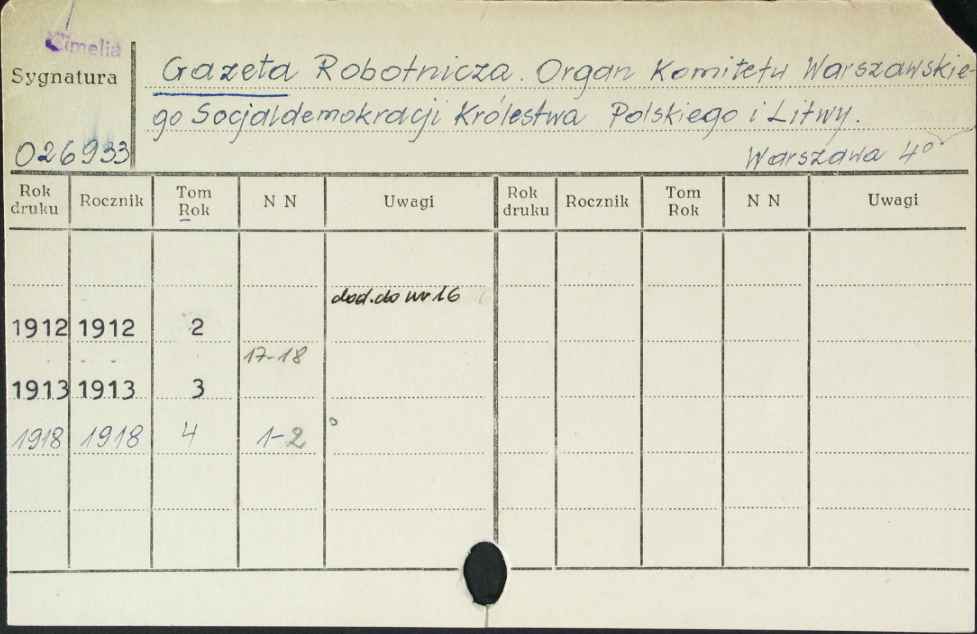 Cimelia
Sygnatura
Gazeta Robotnicza. Organ Komitetu Warszawskie-
go Socjaldemokracji Królestwa Polskiego i Litwy.
026933
Warszawa 4°
Rok druku Rocznik Tom Rok N N Uwagi Rok druku Rocznik Tom Rok N N Uwagi
dod. do nr 16
1912 1912 2
17-18
1913 1913 3
1918 1918 4 1-2